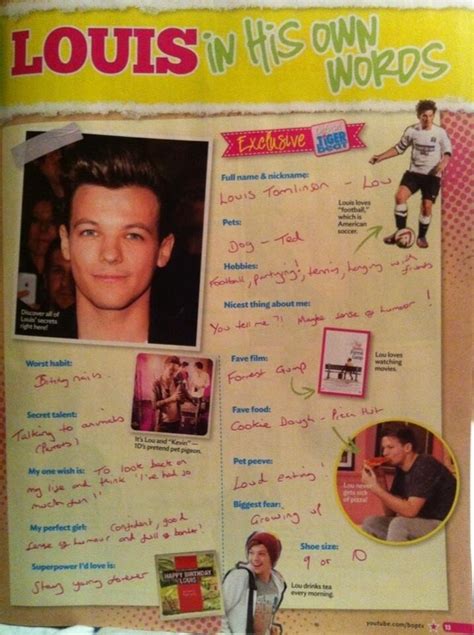 LOUIS in His OWN WORDS
Exclusive TIGER BEAT
Full name & nickname:
Louis Tomlinson - Lou
Louis loves
"football,"
which is
American
soccer.
Pets:
Dog - Ted
Hobbies:
Football, partying!, tennis, hanging with
friends
Discover all of
Louis' secrets
right here!
Nicest thing about me:
You tell me?! Maybe sense of humour!
Worst habit:
Biting nails.
Fave film:
Forrest Gump
Lou loves
watching
movies.
Secret talent:
Talking to animals
(Parrots)
It's Lou and "Kevin"—
1D's pretend pet pigeon.
Fave food:
Cookie Dough - Pizza Hut
My one wish is: To look back on
my live and think 'I've had so
much fun'!
Pet peeve:
Loud eating!
Lou never
gets sick
of pizza!
My perfect girl: Confident, good
sense of humour and full of banter!
Biggest fear:
Growing up
Superpower I'd love is:
Stay young forever
HAPPY BIRTHDAY
LOUIS
Shoe size:
9 or 10
Lou drinks tea
every morning.
youtube.com/boptv 13